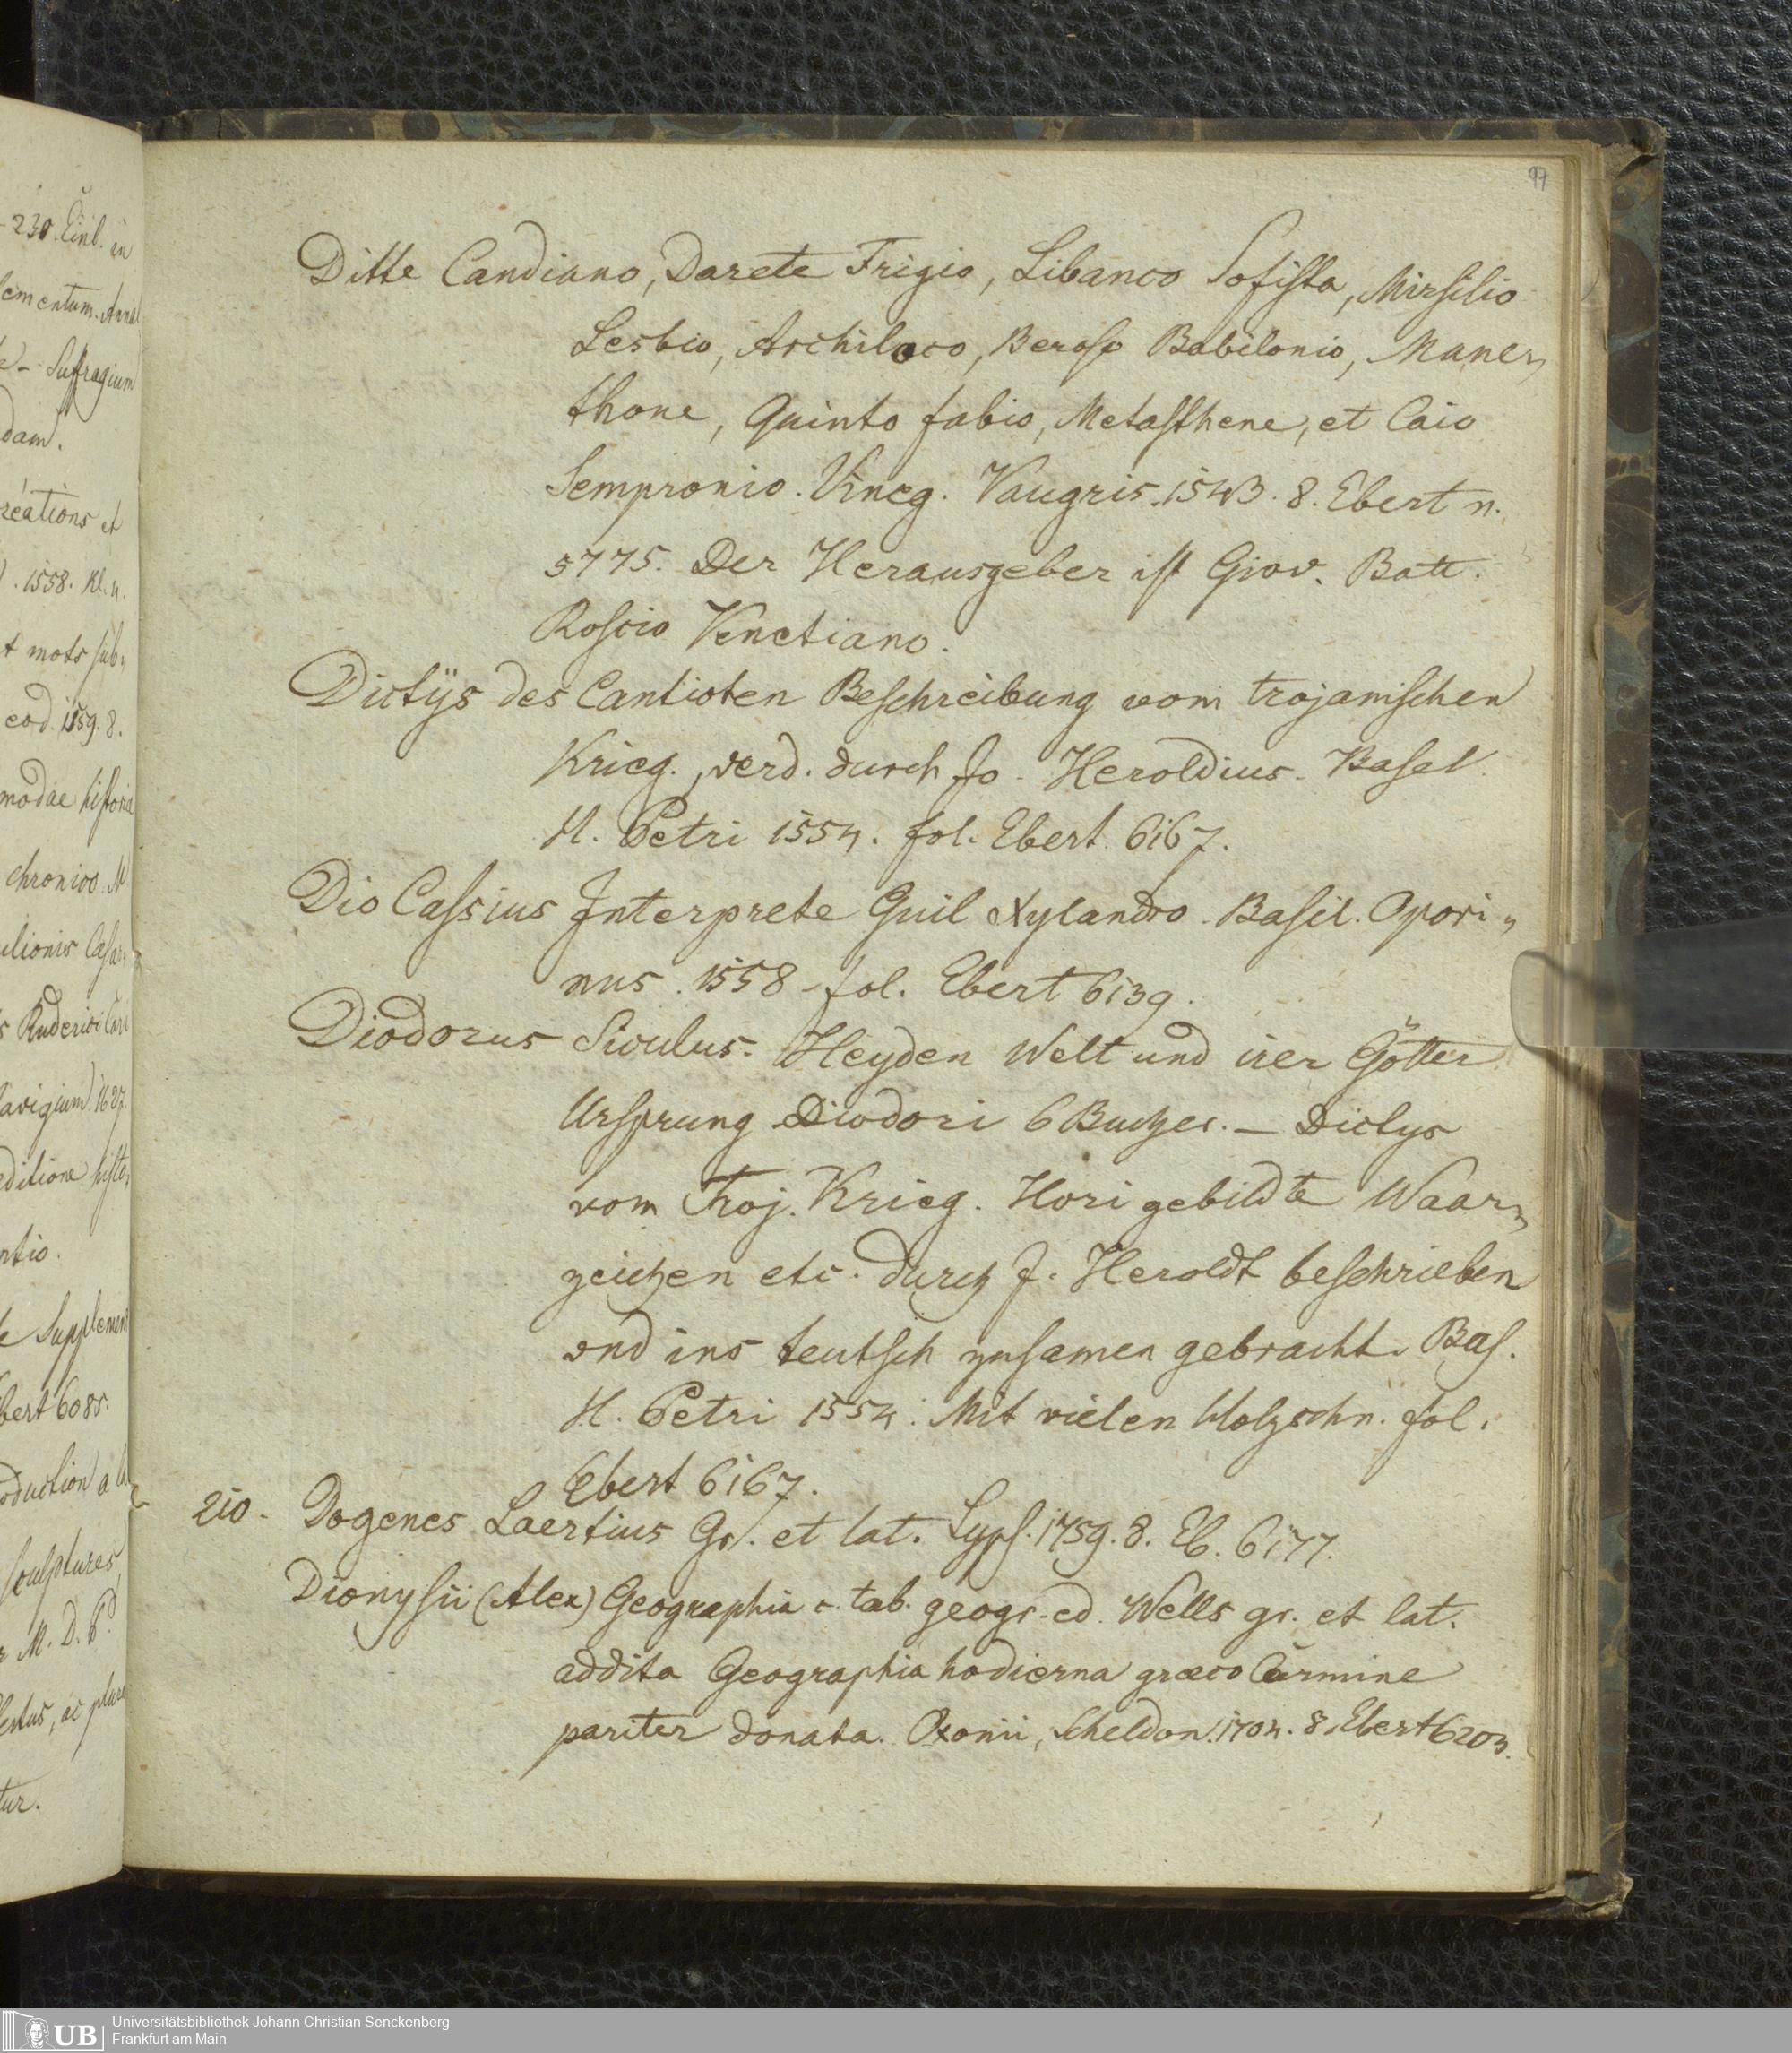 -230. Einb. in
lementum. Annal
- Suffragium
dam.
réations et
. 1558. Kl. n.
t mots sub„
eod. 1559. 8.
modae historia
chronico. M
ilionis Casar„
s Ruderici Cari
avigium 1627.
editione histo„
ntio.
Supplement
bert 6085.
oduction a la
sculptures,
M. D. P.
lectus, ac plure
tur.
97
Ditte Candiano, Darete Frigio, Libanco Sofista, Mirsilio
Lesbio, Archiloco, Beroso Babilonio, Mane„
thone, Quinto fabio, Metasthene, et Caio
Sempronio. Vineg. Vaugris. 1543. 8. Ebert n.
5775. Der Herausgeber ist Giov. Batt.
Roscio Venetiano.
Dictÿs des Cantioten Beschreibung vom trojanischen
Krieg., verd. durch Jo. Heroldius. Basel
H. Petri 1554. fol. Ebert. 6167.
Dio Cassius Interprete Guil Xylandro. Basil. Opori„
nus. 1558. fol. Ebert 6139.
Diodorus Siculus. Heyden Welt und irer Götter
Ursprung Diodori 6 Bucher. — Dictys
vom Troj. Krieg. Hori gebildte Waar„
zeichen etc. durch J. Heroldt beschrieben
vnd ins teutsch zusamen gebracht. Bas.
H. Petri 1554. Mit vielen Holzschn. fol.
Ebert 6167.
210. Dogenes Laertius Gr. et lat. Lyps. 1759. 8. Eb. 6177.
Dionysii (Alex) Geographia c. tab. geogr. ed. Wells gr. et lat.
addita Geographia hodierna græco Carmine
pariter donata. Oxonii, Scheldon. 1704. 8. Ebert 6203.
UB
Universitätsbibliothek Johann Christian Senckenberg
Frankfurt am Main